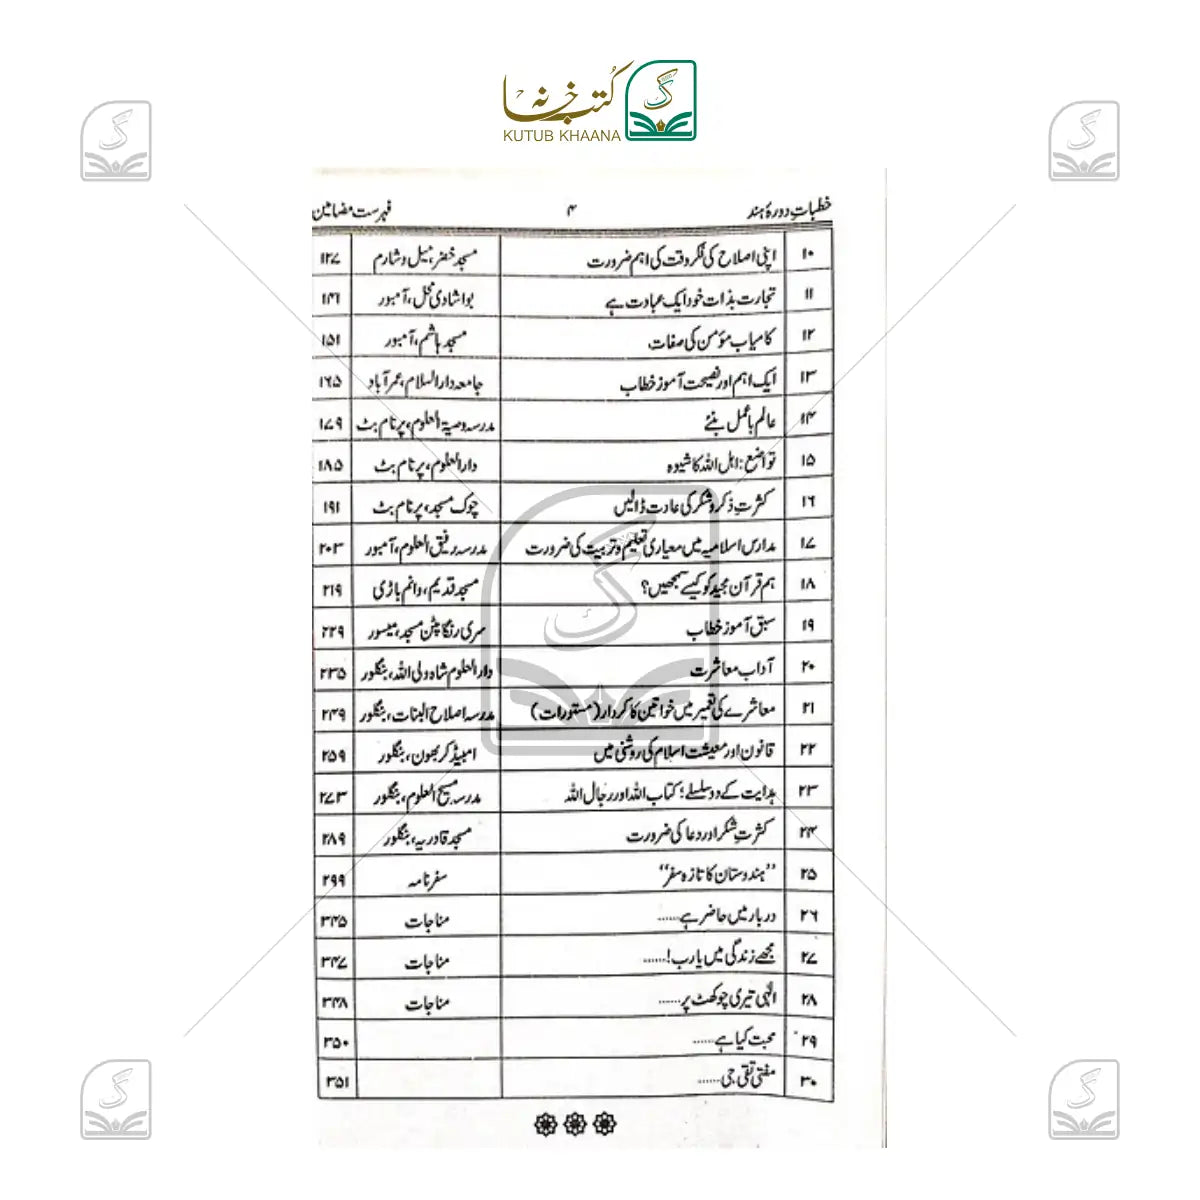 کتب خانہ
KUTUB KHAANA
خطباتِ دورۂ ہند ۴ فہرست مضامین
۱۰ اپنی اصلاح کی فکر وقت کی اہم ضرورت مسجد خضر، میل وشارم ۱۲۷
۱۱ تجارت بذات خود ایک عبادت ہے بوا شادی محل، آمبور ۱۴۱
۱۲ کامیاب مؤمن کی صفات مسجد ہاشم، آمبور ۱۵۱
۱۳ ایک اہم اور نصیحت آموز خطاب جامعہ دارالسلام، عمر آباد ۱۶۵
۱۴ عالم باعمل بنئے مدرسہ وصیۃ العلوم، پرنام بٹ ۱۷۹
۱۵ تواضع: اہل اللہ کا شیوہ دارالعلوم، پرنام بٹ ۱۸۵
۱۶ کثرتِ ذکر و شکر کی عادت ڈالیں چوک مسجد، پرنام بٹ ۱۹۱
۱۷ مدارس اسلامیہ میں معیاری تعلیم و تربیت کی ضرورت مدرسہ رفیق العلوم، آمبور ۲۰۳
۱۸ ہم قرآن مجید کو کیسے سمجھیں؟ مسجد قدیم، وانم باڑی ۲۱۹
۱۹ سبق آموز خطاب سری رنگا پٹن مسجد، میسور ۲۲۹
۲۰ آداب معاشرت دارالعلوم شاہ ولی اللہ، بنگلور ۲۳۵
۲۱ معاشرے کی تعمیر میں خواتین کا کردار (مستورات) مدرسہ اصلاح البنات، بنگلور ۲۴۹
۲۲ قانون اور معیشت اسلام کی روشنی میں امبیڈکر بھون، بنگلور ۲۵۹
۲۳ ہدایت کے دو سلسلے؛ کتاب اللہ اور رجال اللہ مدرسہ مسیح العلوم، بنگلور ۲۷۳
۲۴ کثرتِ شکر اور دعا کی ضرورت مسجد قادریہ، بنگلور ۲۸۹
۲۵ ”ہندوستان کا تازہ سفر“ سفرنامہ ۲۹۹
۲۶ دربار میں حاضر ہے...... مناجات ۳۴۵
۲۷ مجھے زندگی میں یا رب!...... مناجات ۳۴۷
۲۸ الٰہی تیری چوکھٹ پر...... مناجات ۳۴۸
۲۹ محبت کیا ہے...... ۳۵۰
۳۰ مفتی تقی جی...... ۳۵۱